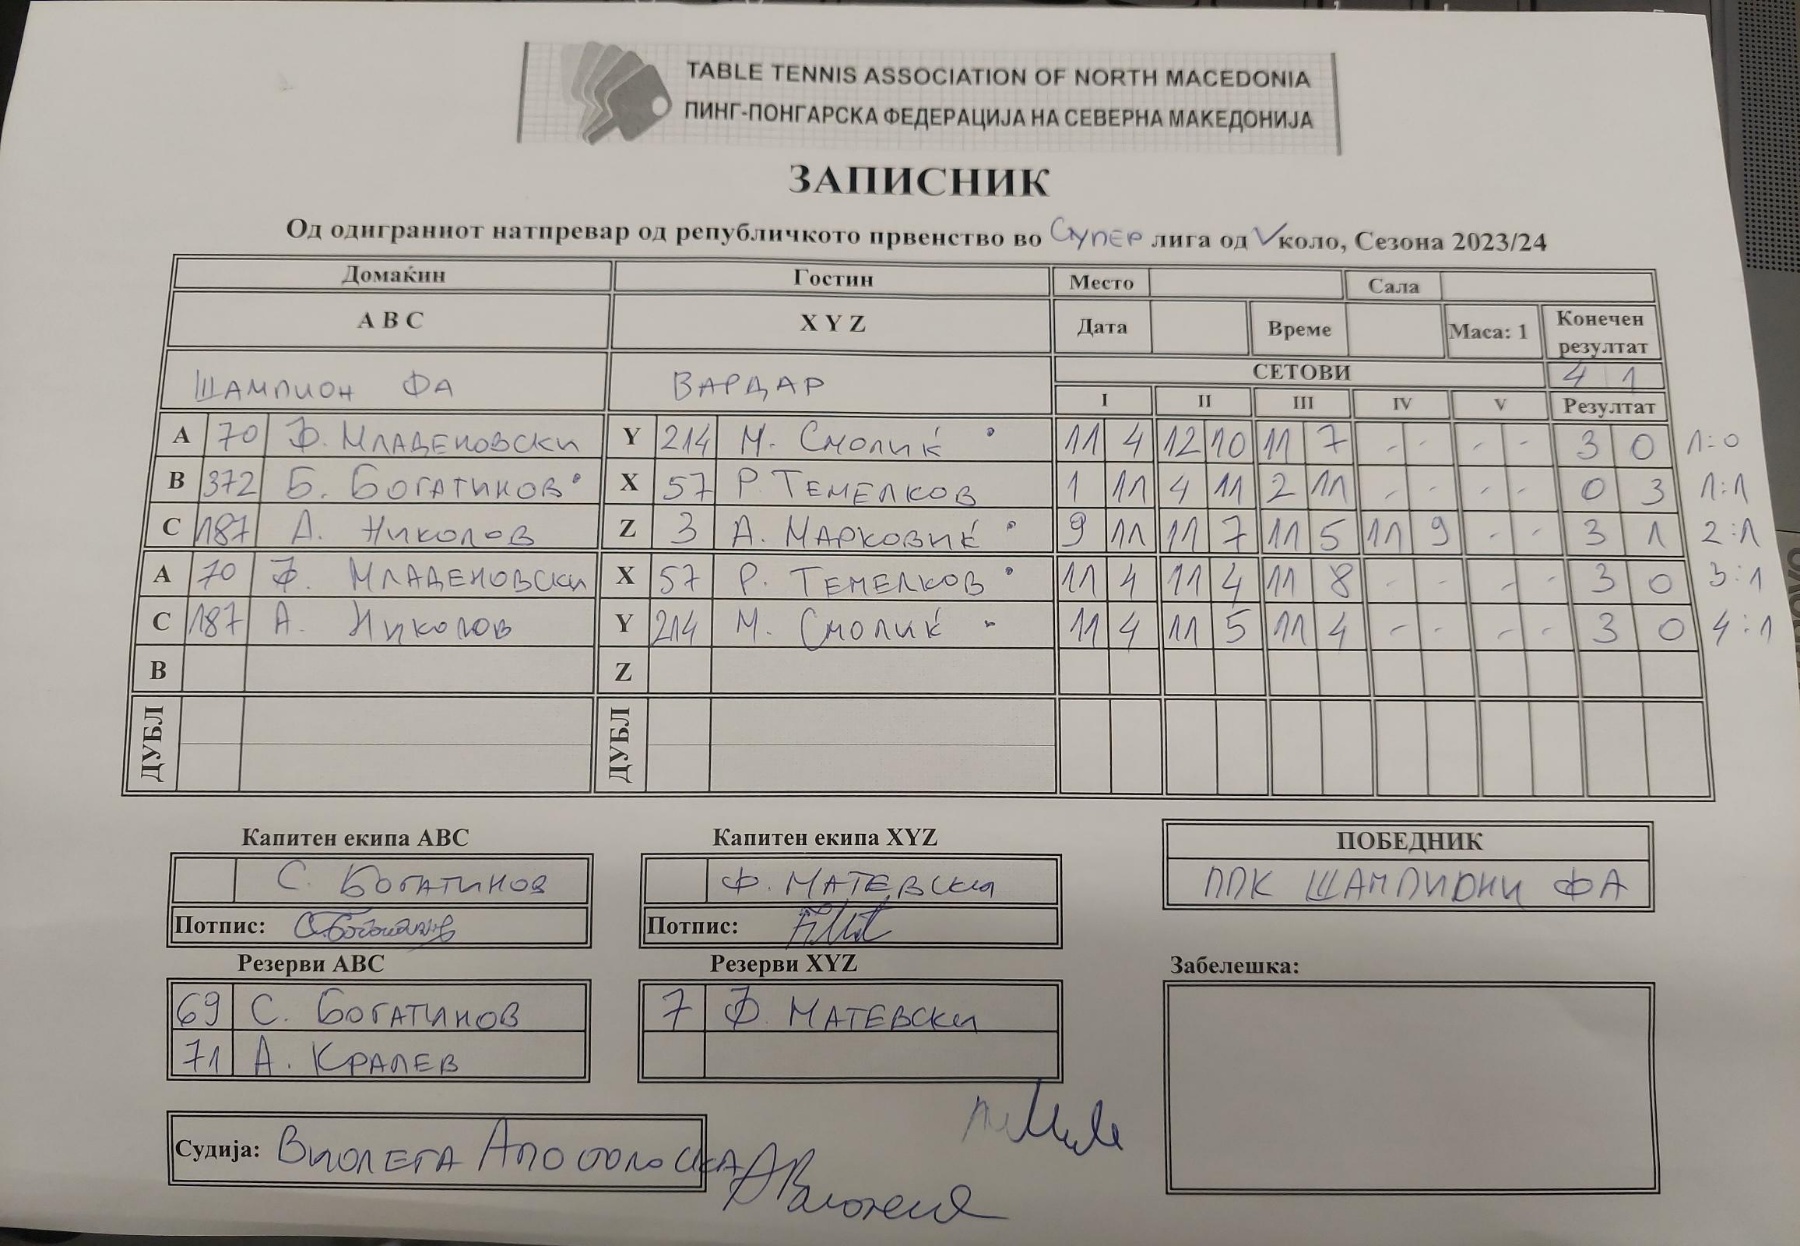 TABLE TENNIS ASSOCIATION OF NORTH MACEDONIA
ПИНГ-ПОНГАРСКА ФЕДЕРАЦИЈА НА СЕВЕРНА МАКЕДОНИЈА
ЗАПИСНИК
Од одиграниот натпревар од републичкото првенство во СУПЕР лига од V коло, Сезона 2023/24
Домаќин Гостин Место Сала
A B C X Y Z Дата Време Маса: 1 Конечен резултат
ШАМПИОН ФА ВАРДАР СЕТОВИ 4 1
I II III IV V Резултат
A 70 Ф. МЛАДЕНОВСКИ Y 214 М. СМОЛИЌ 11 4 12 10 11 7 - - - - 3 0 1:0
B 372 Б. БОГАТИНОВ X 57 Р. ТЕМЕЛКОВ 1 11 4 11 2 11 - - - - 0 3 1:1
C 187 А. НИКОЛОВ Z 3 А. МАРКОВИЌ 9 11 11 7 11 5 11 9 - - 3 1 2:1
A 70 Ф. МЛАДЕНОВСКИ X 57 Р. ТЕМЕЛКОВ 11 4 11 4 11 8 - - - - 3 0 3:1
C 187 А. НИКОЛОВ Y 214 М. СМОЛИЌ 11 4 11 5 11 4 - - - - 3 0 4:1
B Z
ДУБЛ ДУБЛ
Капитен екипа ABC Капитен екипа XYZ ПОБЕДНИК
С. БОГАТИНОВ Ф. МАТЕВСКИ ППК ШАМПИОНИ ФА
Потпис: Потпис:
Резерви ABC Резерви XYZ Забелешка:
69 С. БОГАТИНОВ 7 Ф. МАТЕВСКИ
71 А. КРАЛЕВ
Судија: ВИОЛЕТА АПОСТОЛОСКА